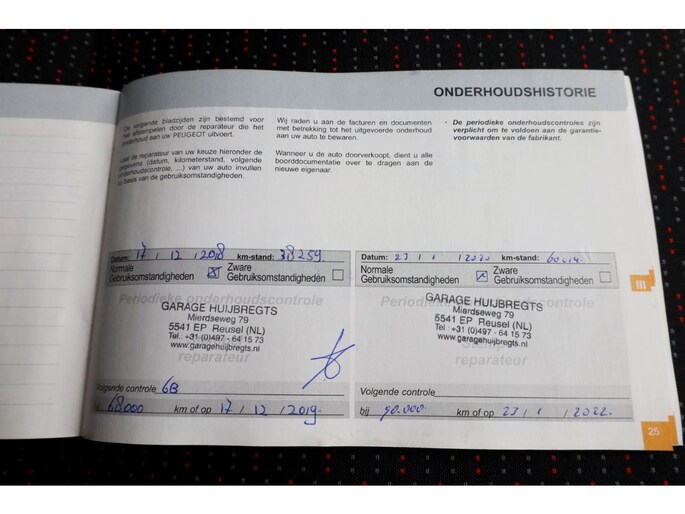 ONDERHOUDSHISTORIE
De volgende bladzijden zijn bestemd voor
het afstempelen door de reparateur die het
onderhoud aan uw PEUGEOT uitvoert.
Laat de reparateur van uw keuze hieronder de
gegevens (datum, kilometerstand, volgende
onderhoudscontrole, ...) van uw auto invullen
op basis van de gebruiksomstandigheden.
Wij raden u aan de facturen en documenten
met betrekking tot het uitgevoerde onderhoud
aan uw auto te bewaren.
Wanneer u de auto doorverkoopt, dient u alle
boorddocumentatie over te dragen aan de
nieuwe eigenaar.
- De periodieke onderhoudscontroles zijn
verplicht om te voldoen aan de garantie-
voorwaarden van de fabrikant.
Datum: 17 / 12 / 2018 km-stand: 38259
Normale
Gebruiksomstandigheden
Zware
Gebruiksomstandigheden
Periodieke onderhoudscontrole
GARAGE HUIJBREGTS
Mierdseweg 79
5541 EP Reusel (NL)
Tel.: +31 (0)497 - 64 15 73
www.garagehuijbregts.nl
reparateur
Volgende controle 6B
bij 68.000 km of op 17 / 12 / 2019
Datum: 23 / 1 / 2020 km-stand: 60014
Normale
Gebruiksomstandigheden
Zware
Gebruiksomstandigheden
Periodieke onderhoudscontrole
GARAGE HUIJBREGTS
Mierdseweg 79
5541 EP Reusel (NL)
Tel.: +31 (0)497 - 64 15 73
www.garagehuijbregts.nl
reparateur
Volgende controle
bij 90.000 km of op 23 / 1 / 2022
III
25